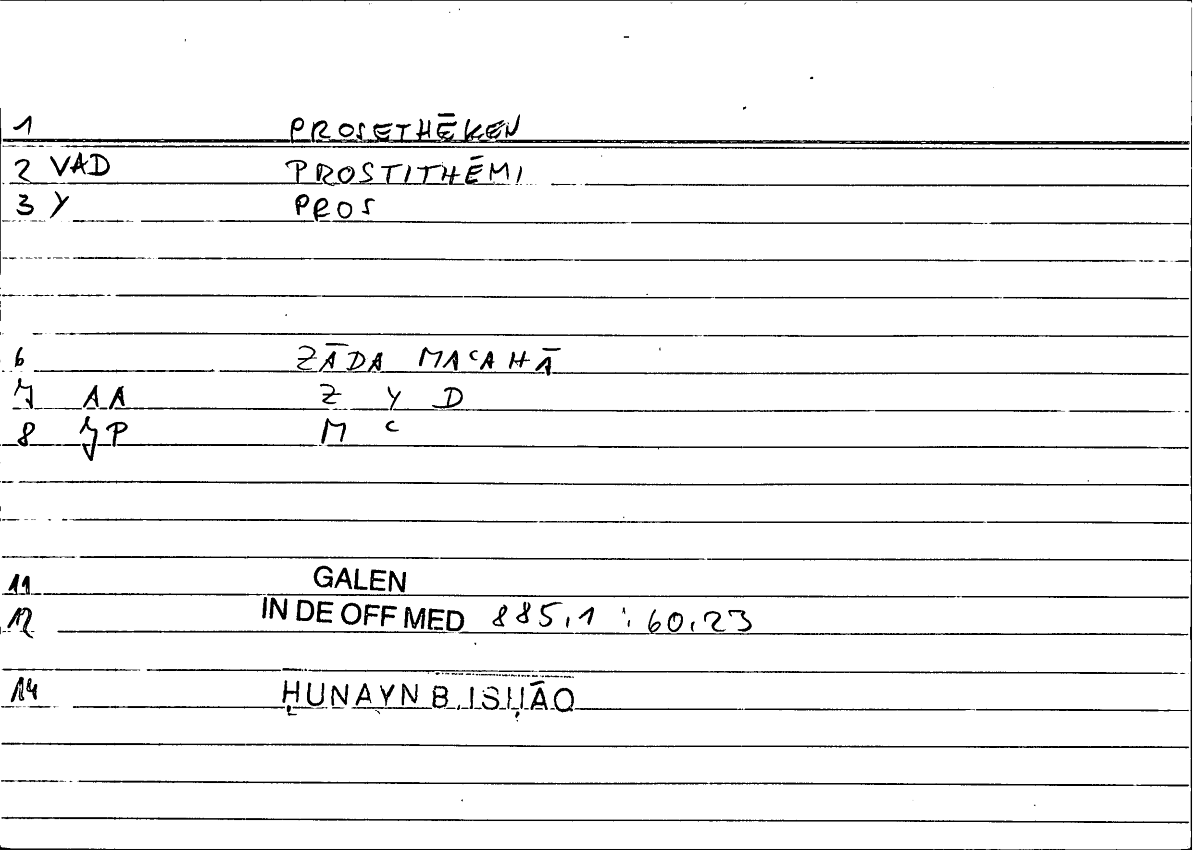 1 PROSETHĒKEN
2 VAD PROSTITHĒMI
3 Y PROS
6 ZĀDA MAᶜAHĀ
7 AA Z Y D
8 JP M ᶜ
11 GALEN
12 IN DE OFF MED 885,1 : 60,23
14 ḤUNAYN B. ISḤĀQ